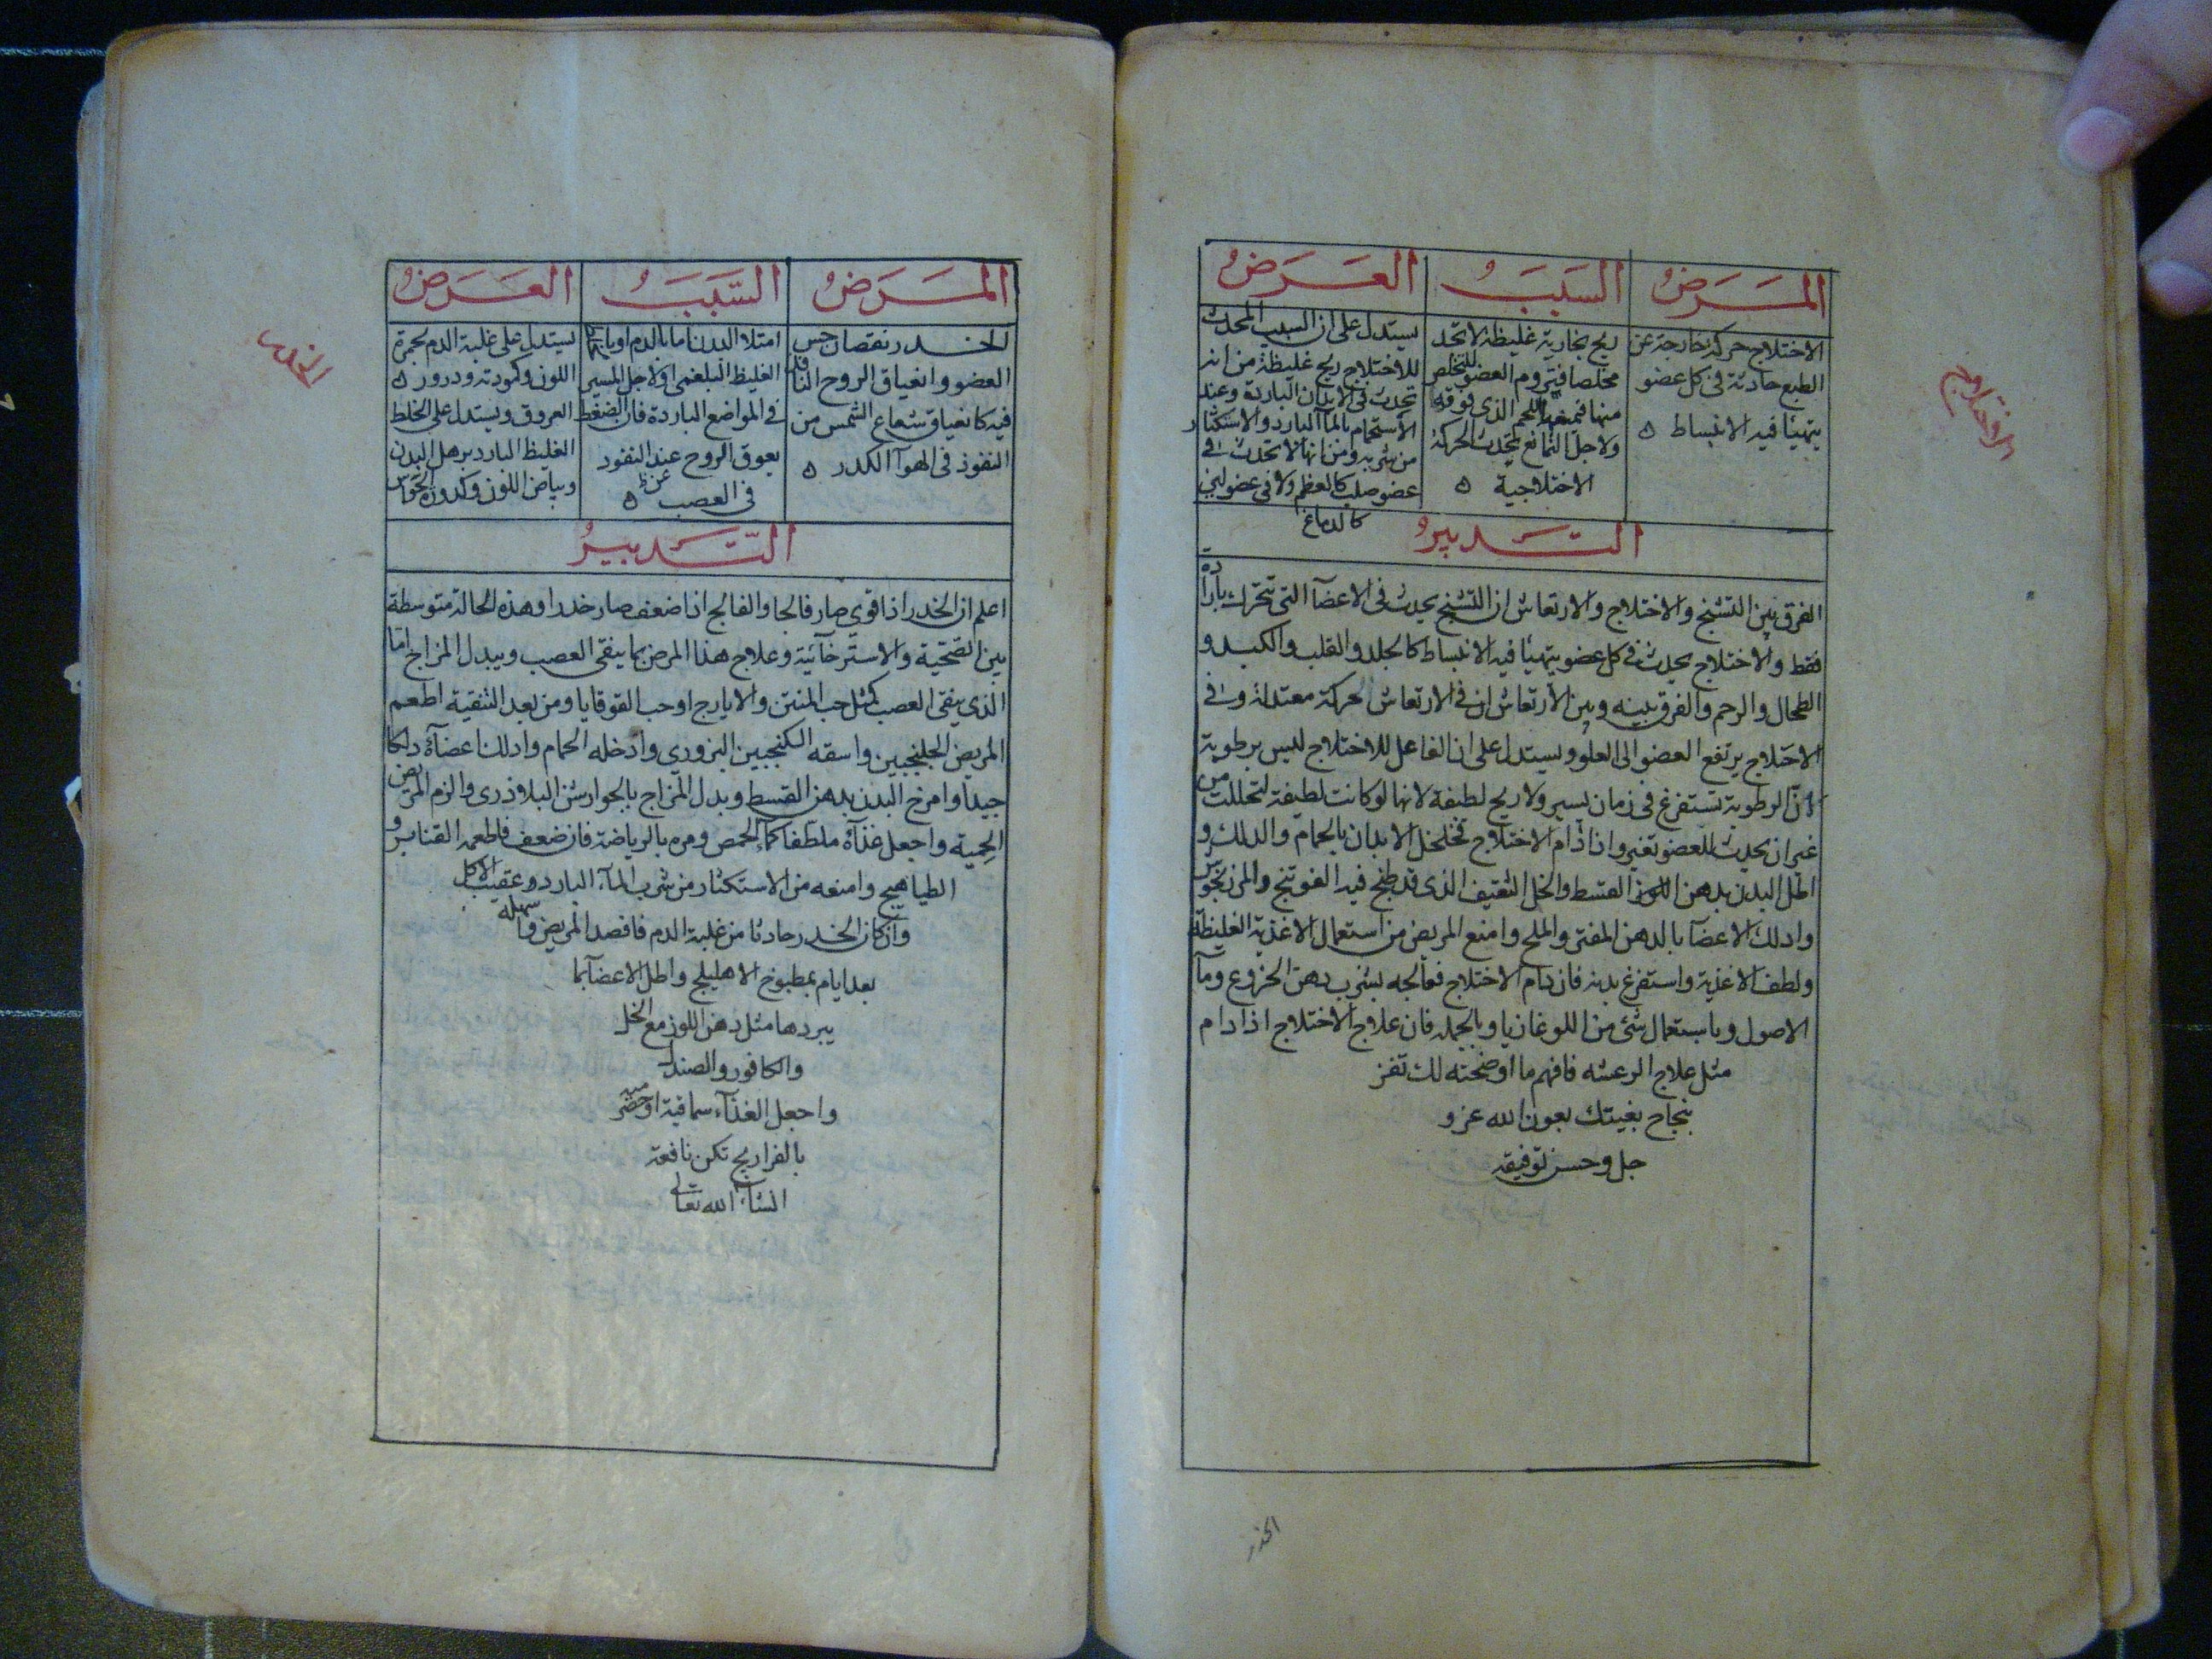 الاختلاج
المَرَضُ
السَبَبُ
العَرَضُ
الاختلاج حركة خارجة عن
الطبع حادثة فى كل عضو
يتهيأ فيه الانبساط ه
ريح بخارية غليظة لا تجد
مخلصا فتروم العضو للتخلص
منها فيمنعها اللحم الذى فوقه
ولاجل التمانع تحدث الحركة
الاختلاجية ه
يستدل على ان السبب المحدث
للاختلاج ريح غليظة من انه
تحدث فى الابدان الباردة وعند
الاستحمام بالمآ البارد والاستكثار
من شربه ومن انها لا تحدث فى
عضو صلب كالعظم ولا فى عضو لين
كالدماغ
التَدبيرُ
الفرق بين التشنج والاختلاج والارتعاش ان التشنج يحدث فى الاعضآ التى تتحرك بارادة
فقط والاختلاج يحدث فى كل عضو يتهيأ فيه الانبساط كالجلد والقلب والكبد و
الطحال والرحم والفرق بينه وبين الارتعاش ان فى الارتعاش حركة معتدلة وفى
الاختلاج يرتفع العضو الى العلو ويستدل على ان الفاعل للاختلاج ليس برطوبة
لأن الرطوبة تستفرغ فى زمان يسير ولا ريح لطيفة لانها لو كانت لطيفة لتحللت من
غير ان يحدث للعضو تغير واذا دام الاختلاج تخلخل الابدان بالحمام والدلك و
اطل البدن بدهن القسط والخل الثقيف الذى قد طبخ فيه الفوتنج والمرزنجوش
وادلك الاعضآ بالدهن المفتر والملح وامنع المريض من استعمال الاغذية الغليظة
ولطف الاغذية واستفرغ بدنه فان دام الاختلاج فعالجه بشرب دهن الخروع ومآ
الاصول وباستعمال شئ من اللوغاذيا وبالجملة فان علاج الاختلاج اذا دام
مثل علاج الرعشه فافهم ما اوضحته لك تفز
بنجاح بغيتك بعون الله عز و
جل وحسن توفيقه
الخدر
الخدر
المَرَضُ
السَّبَبُ
العَرَضُ
الخدر نقصان حس
العضو وانعياق الروح النافذ
فيه كانعياق شعاع الشمس من
النفوذ فى الهوآ الكدر ه
امتلا البدن اما بالدم او
الغليظ البلغمى او لاجل المسير
فى المواضع الباردة فان الضغط
يعوق الروح عند النفوذ
فى العصب ه
يستدل على غلبة الدم بحمرة
اللون وكمودته ودرور ه
العروق ويستدل على الخلط
الغليظ البارد برهل البدن
وبياض اللون وكدورة الحواس
التَّدبيرُ
اعلم ان الخدر اذا قوى صار فالجا والفالج اذا ضعف صار خدرا وهذه الحالة متوسطة
بين الصحية والاسترخآئية وعلاج هذا المرض بما ينقى العصب ويبدل المزاج اما
الذى ينقى العصب كمثل حب المنتن والايارج او حب القوقايا ومن بعد التنقية اطعم
المريض الجلنجبين واسقه السكنجبين البزورى وادخله الحمام وادلك اعضآءه دلكا
جيدا وامرخ البدن بدهن القسط وبدل المزاج بالجوارشن البلاذرى والزم المريض
الحمية واجعل غذآءه ملطفا كمآء الحمص ومره بالرياضة فان ضعف فاطعمه القنابر و
الطياهيج وامنعه من الاستكثار من شرب المآء البارد وعقيب الاكل
وان كان الخدر حادثا من غلبة الدم فافصد المريض واسهله
بعد ايام بمطبوخ الاهليلج واطل الاعضآ بما
يبردها مثل دهن اللوز مع الخل
والكافور والصندل
واجعل الغذآء سماقية او حصرمية
بالفراريج تكن نافعة
انشآء الله تعالى